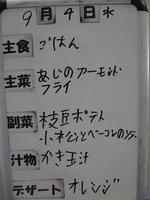 9月4日水
主食 ごはん
主菜 あじのアーモンド
フライ
副菜 枝豆ポテト
小松菜とベーコンのソテー
汁物 かき玉汁
デザート オレンジ